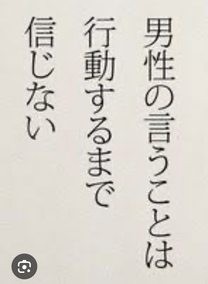 男性の言うことは
行動するまで
信じない